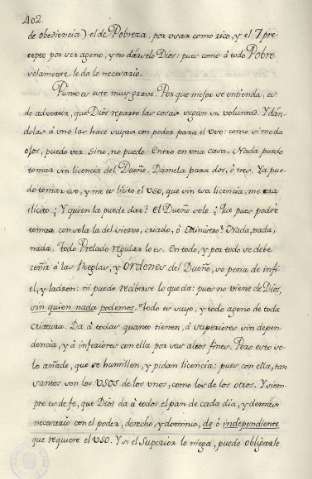 402
de obediencia) el de Pobreza, por usar como rico, y el 7 pre-
cepto por ser ageno, y no darselo Dios: pues como á todo Pobre
solamente le da lo necesario.
Punto es este muy grave. Para que mejor se entienda, es
de advertir, que Dios reparte las cosas segun su voluntad. Y dán-
dolas á uno las hace suyas con poder para el uso: como si no da
ojos, puede ver. Sino, no puede. Entro en una casa. Nada puedo
tomar sin licencia del Dueño. Damela para dos, ó tres. Ya pue-
do tomar eso, y me es lícito el uso, que sin esa licencia, me era
ilícito. ¿Y quien la puede dar? El Dueño solo. ¿Que pues podré
tomar con sola la del siervo, criado, ó Ministro? Nada, nada,
nada. Todo Prelado regular lo es. En todo, y por todo se debe
ceñir á las Reglas, y Ordenes del Dueño, so pena de infi-
el, y ladron: ni puede recibirse lo que da: pues no viene de Dios,
sin quien nada podemos. Todo es suyo, y todo ageno de toda
criatura. Da á todas quanto tienen, á superiores sin depen-
dencia, y á inferiores con ella por sus altos fines. Pero esto so-
lo añade, que se humillen, y pidan licencia: pues con ella, tan
santos son los usos de los unos, como los de los otros. Y siem-
pre es de fe, que Dios da á todos el pan de cada dia, y demas
necesario con el poder, derecho, y dominio, de ó independiente
que requiere el uso. Y si el Superior lo niega, puede obligarle